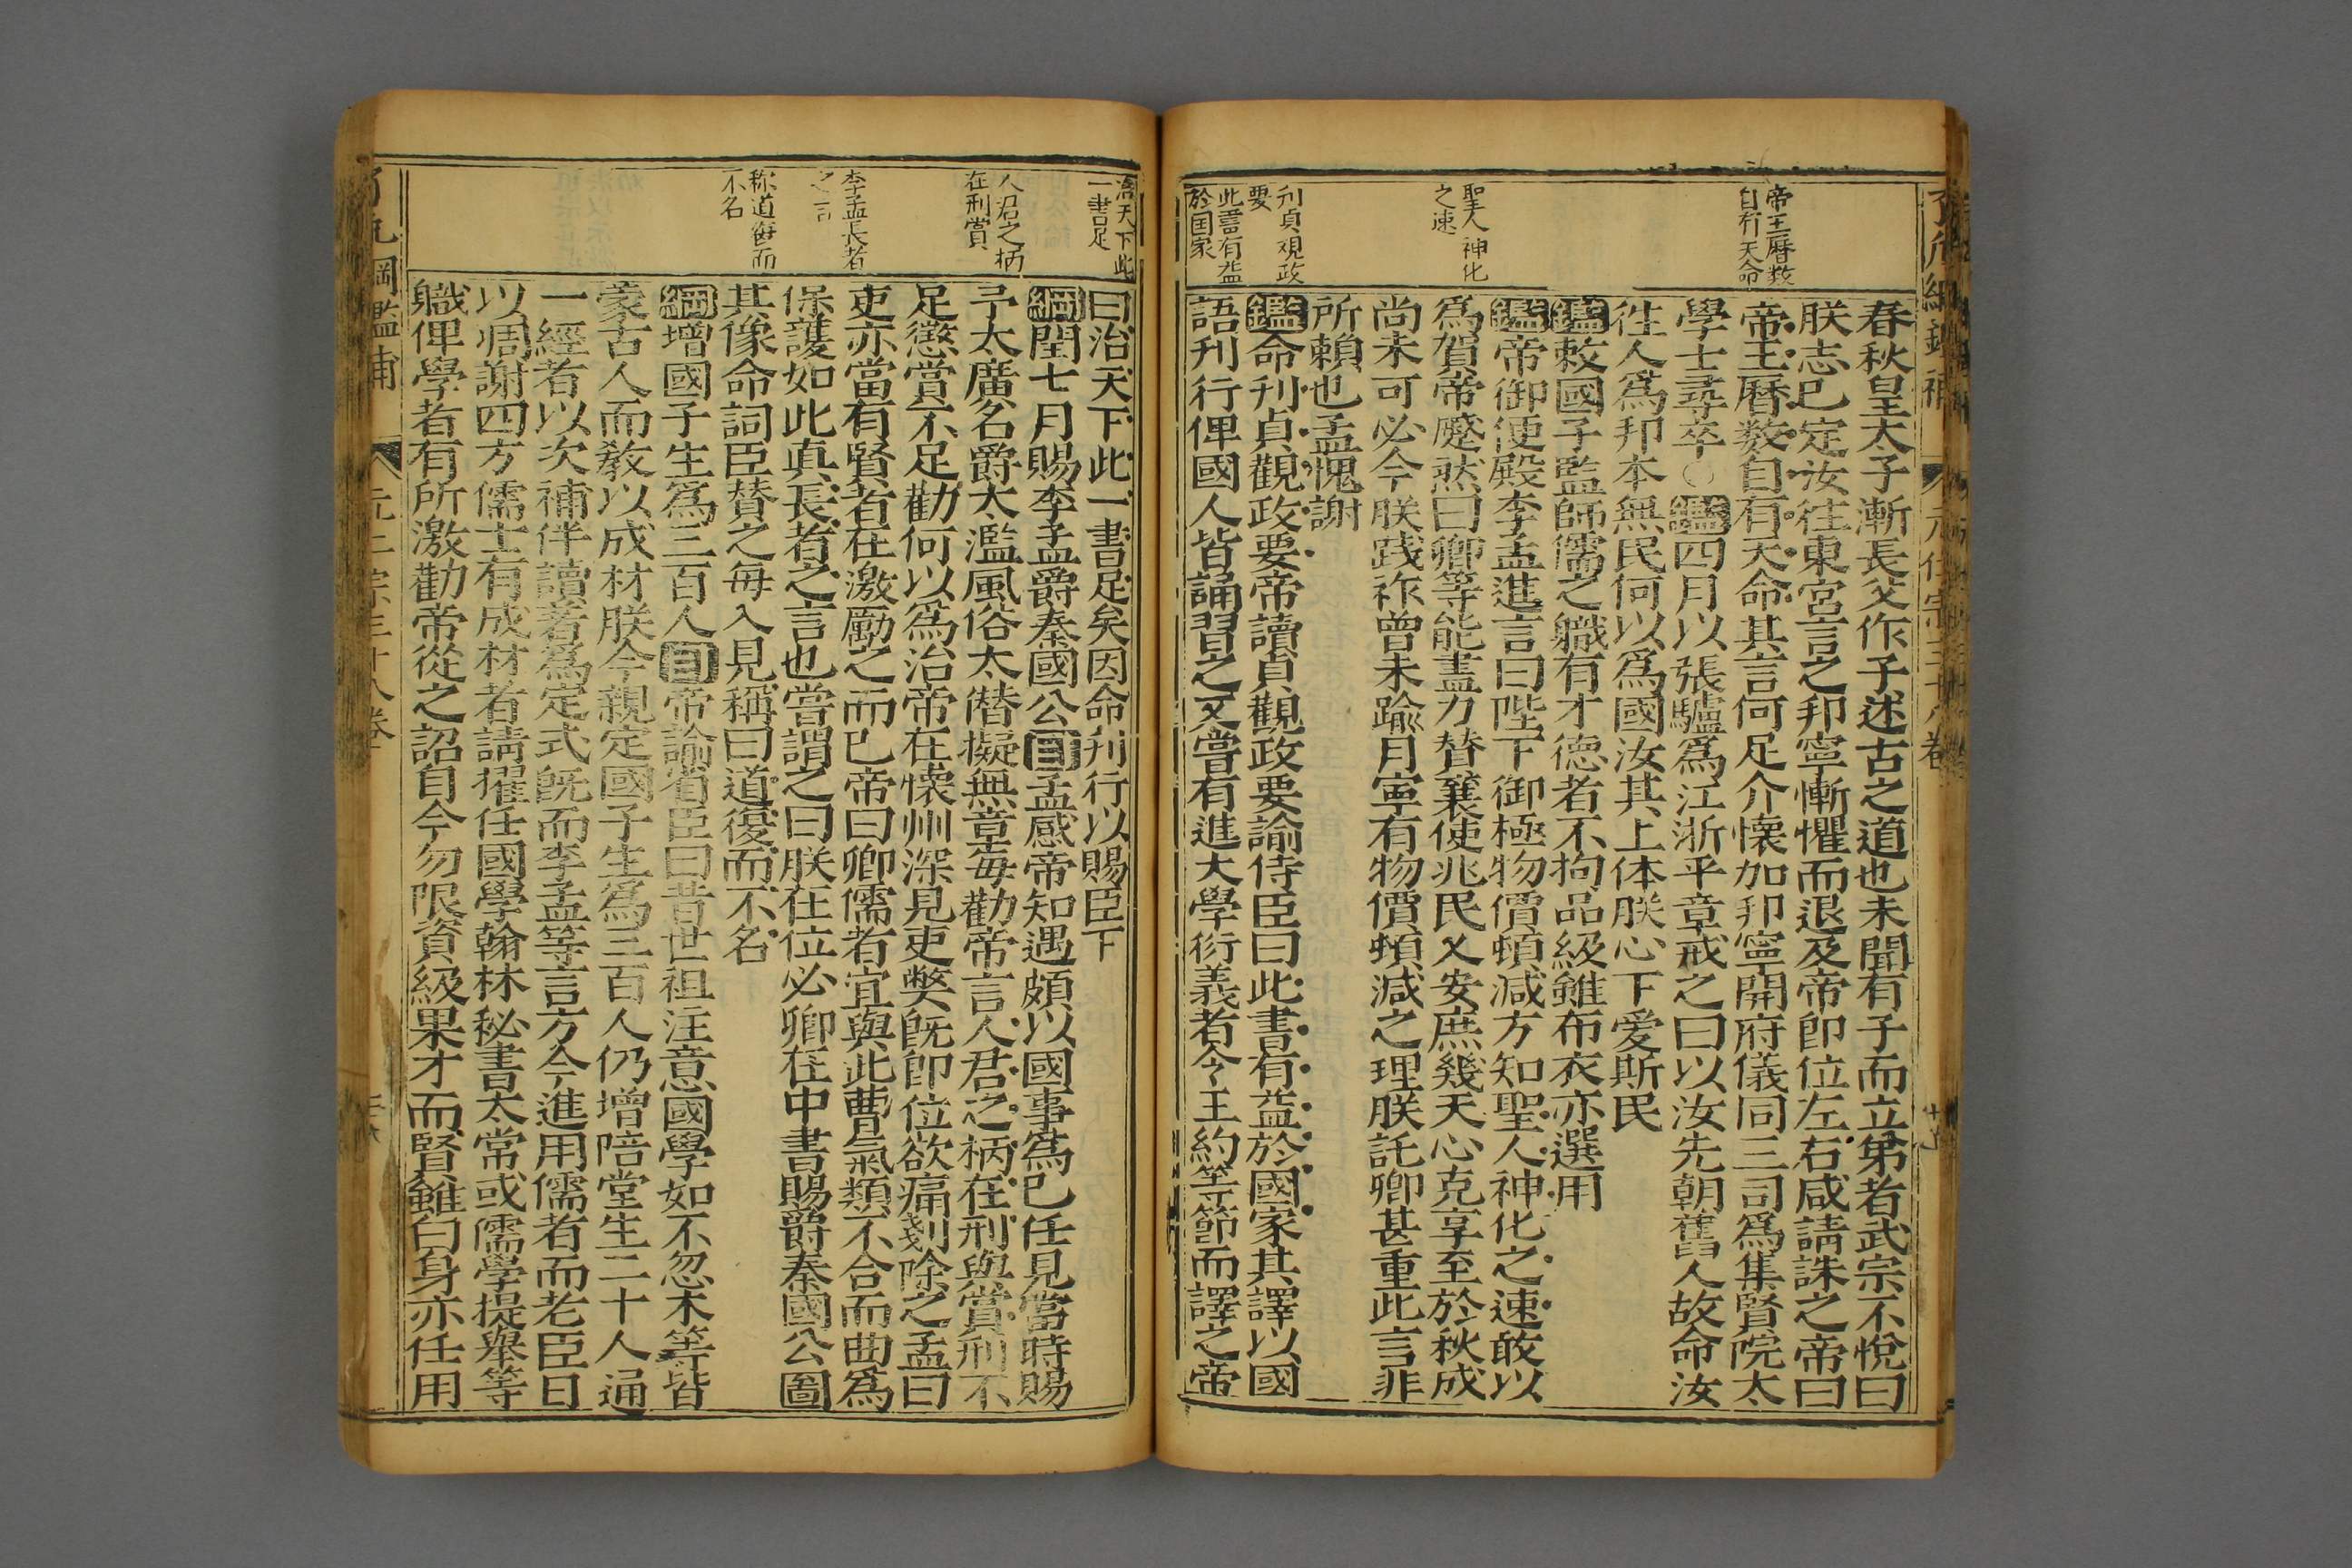 帝王曆数
自有天命
聖人神化
之速
刋貞观政
要
此書有益
於囯家
春秋皇太子漸長父作子述古之道也未聞有子而立弟者武宗不悅曰
朕志已定汝往東宮言之邦寧慚懼而退及帝卽位左右咸請誅之帝曰
帝王曆数自有天命其言何足介懷加邦寧開府儀同三司爲集賢院大
學士尋卒○鑑四月以張驢爲江浙平章戒之曰以汝先朝舊人故命汝
徃人爲邦本無民何以爲國汝其上体朕心下愛斯民
鑑敕國子監師儒之職有才德者不拘品級雖布衣亦選用
鑑帝御便殿李孟進言曰陛下御極物價頓減方知聖人神化之速敢以
爲賀帝蹙然曰卿等能盡力賛襄使兆民乂安庶幾天心克享至於秋成
尚未可必今朕践祚曾未踰月寧有物價頓減之理朕託卿甚重此言非
所賴也孟愧謝
鑑命刋貞觀政要帝讀貞觀政要諭侍臣曰此書有益於國家其譯以國
語刋行俾國人皆誦習之又嘗有進大學衍義者令王約等節而譯之帝
治天下此
一書足
人君之柄
在刑賞
李孟長者
之言
称道復而
不名
曰治天下此一書足矣因命刋行以賜臣下
綱閏七月賜李孟爵秦國公目孟感帝知遇頗以國事爲已任見當時賜
予太廣名爵太濫風俗太僣擬無章每勸帝言人君之柄在刑與賞刑不
足懲賞不足勸何以爲治帝在懷州深見吏獘旣卽位欲痛剗除之孟曰
吏亦當有賢者在激厲之而已帝曰卿儒者宜與此曹氣類不合而曲爲
保護如此真長者之言也嘗謂之曰朕在位必卿在中書賜爵秦國公圖
其像命詞臣賛之每入見稱曰道復而不名
綱增國子生爲三百人目帝諭省臣曰昔世祖注意國學如不忽木等皆
蒙古人而教以成材朕今親定國子生爲三百人仍增陪堂生二十人通
一經者以次補伴讀著爲定式旣而李孟等言方今進用儒者而老臣日
以凋謝四方儒士有成材者請擢任國學翰林秘書太常或儒學提舉等
職俾學者有所激勸帝從之詔自今勿限資級果才而賢雖白身亦任用